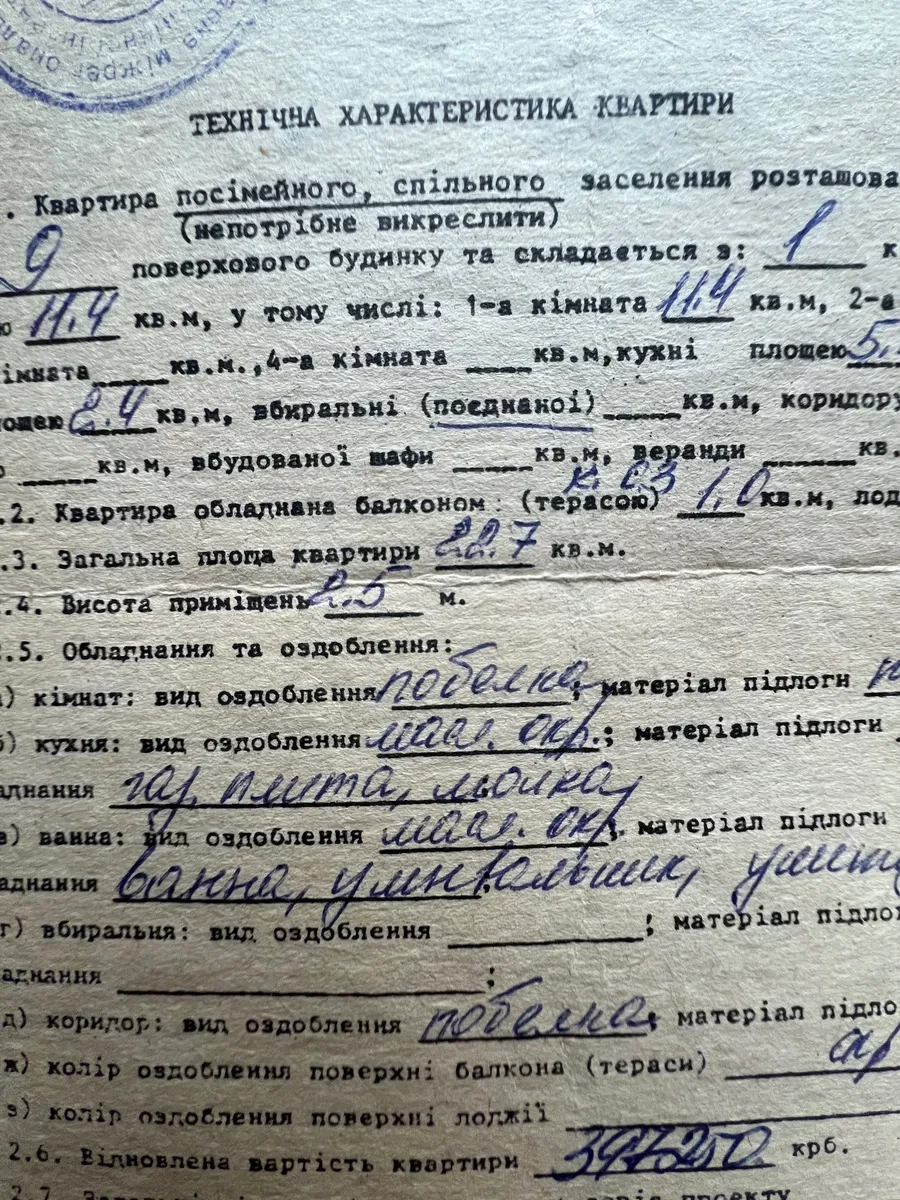 ТЕХНІЧНА ХАРАКТЕРИСТИКА КВАРТИРИ
. Квартира посімейного, спільного заселення розташова
(непотрібне викреслити)
9 поверхового будинку та складається з: 1 к
ю 11.4 кв.м, у тому числі: 1-а кімната 11.4 кв.м, 2-а
імната ____ кв.м.,4-а кімната ____ кв.м,кухні площею 5.
ощею 2.4 кв.м, вбиральні (поєднаної) ____ кв.м, коридору
о ____ кв.м, вбудованої шафи ____ кв.м, веранди ____ кв.
.2. Квартира обладнана балконом (терасою) к. 0.3 1.0 кв.м, лод
.3. Загальна площа квартири 22.7 кв.м.
.4. Висота приміщень 2.5 м.
.5. Обладнання та оздоблення:
) кімнат: вид оздоблення побелка; матеріал підлоги
б) кухня: вид оздоблення масл. окр.; матеріал підлоги
аднання газ. плита, мойка
в) ванна: вид оздоблення масл. окр. матеріал підлоги
аднання ванна, умывальник,
г) вбиральня: вид оздоблення ____; матеріал підло
аднання ____;
д) коридор: вид оздоблення побелка; матеріал підло
ж) колір оздоблення поверхні балкона (тераси)
з) колір оздоблення поверхні лоджії
2.6. Відновлена вартість квартири 397250 крб.
2.7. проекту